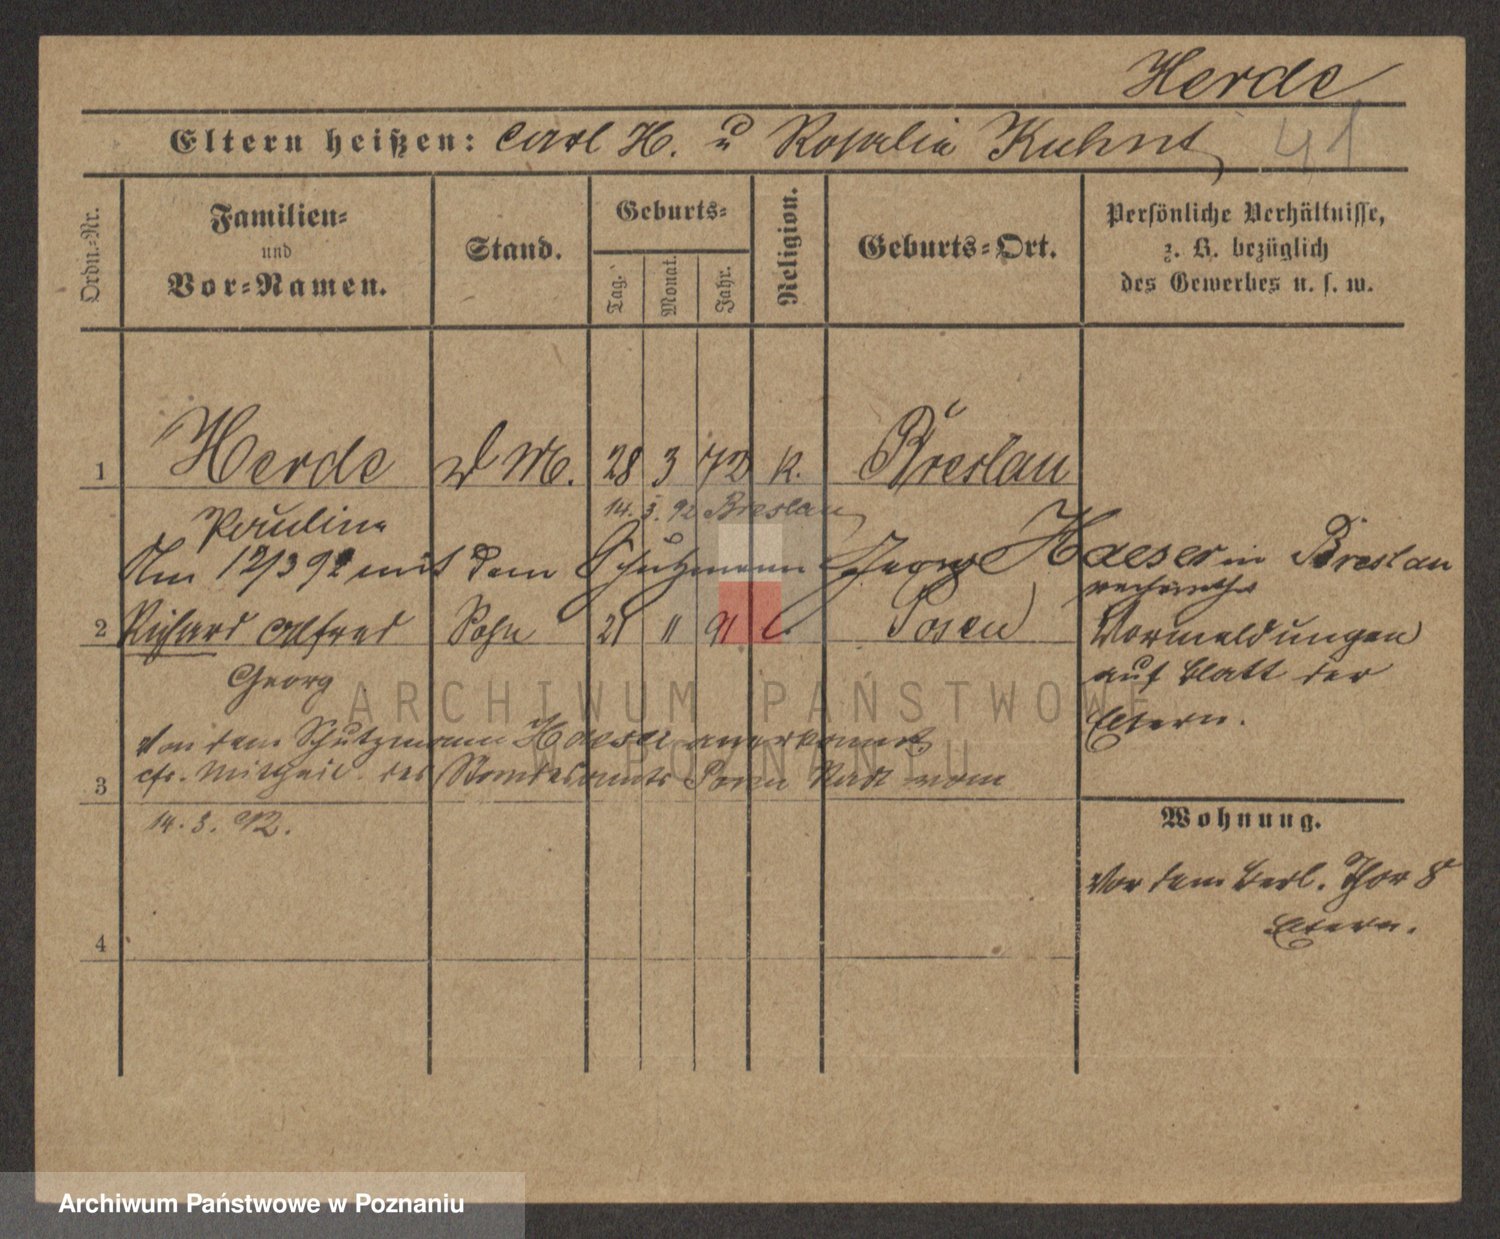 Herde
Eltern heißen: Carl H. u Rosalia Kuhnt 41
Ordn.-Nr.
Familien-
und
Vor-Namen.
Stand.
Geburts-
Tag.
Monat.
Jahr.
Religion.
Geburts-Ort.
Persönliche Verhältnisse,
z. B. bezüglich
des Gewerbes u. s. w.
1 Herde D M. 28 3 72 K. Breslau
14. 3. 92 Breslau
Pauline
Am 12/3 92 mit dem Schutzmann Georg Haeser in Breslau
2 Richard Alfred Sohn 21 11 91 Posen
Georg
Vormeldungen
auf Blatt der
Eltern.
Von dem Schutzmann Haeser anerkannt
3 cfr. Mittheil. des Standesamts Posen Stadt vom
14. 3. 92.
Wohnung.
Vor dem Berl. Thor 8
Eltern.
4
ARCHIWUM PAŃSTWOWE
W POZNANIU
Archiwum Państwowe w Poznaniu